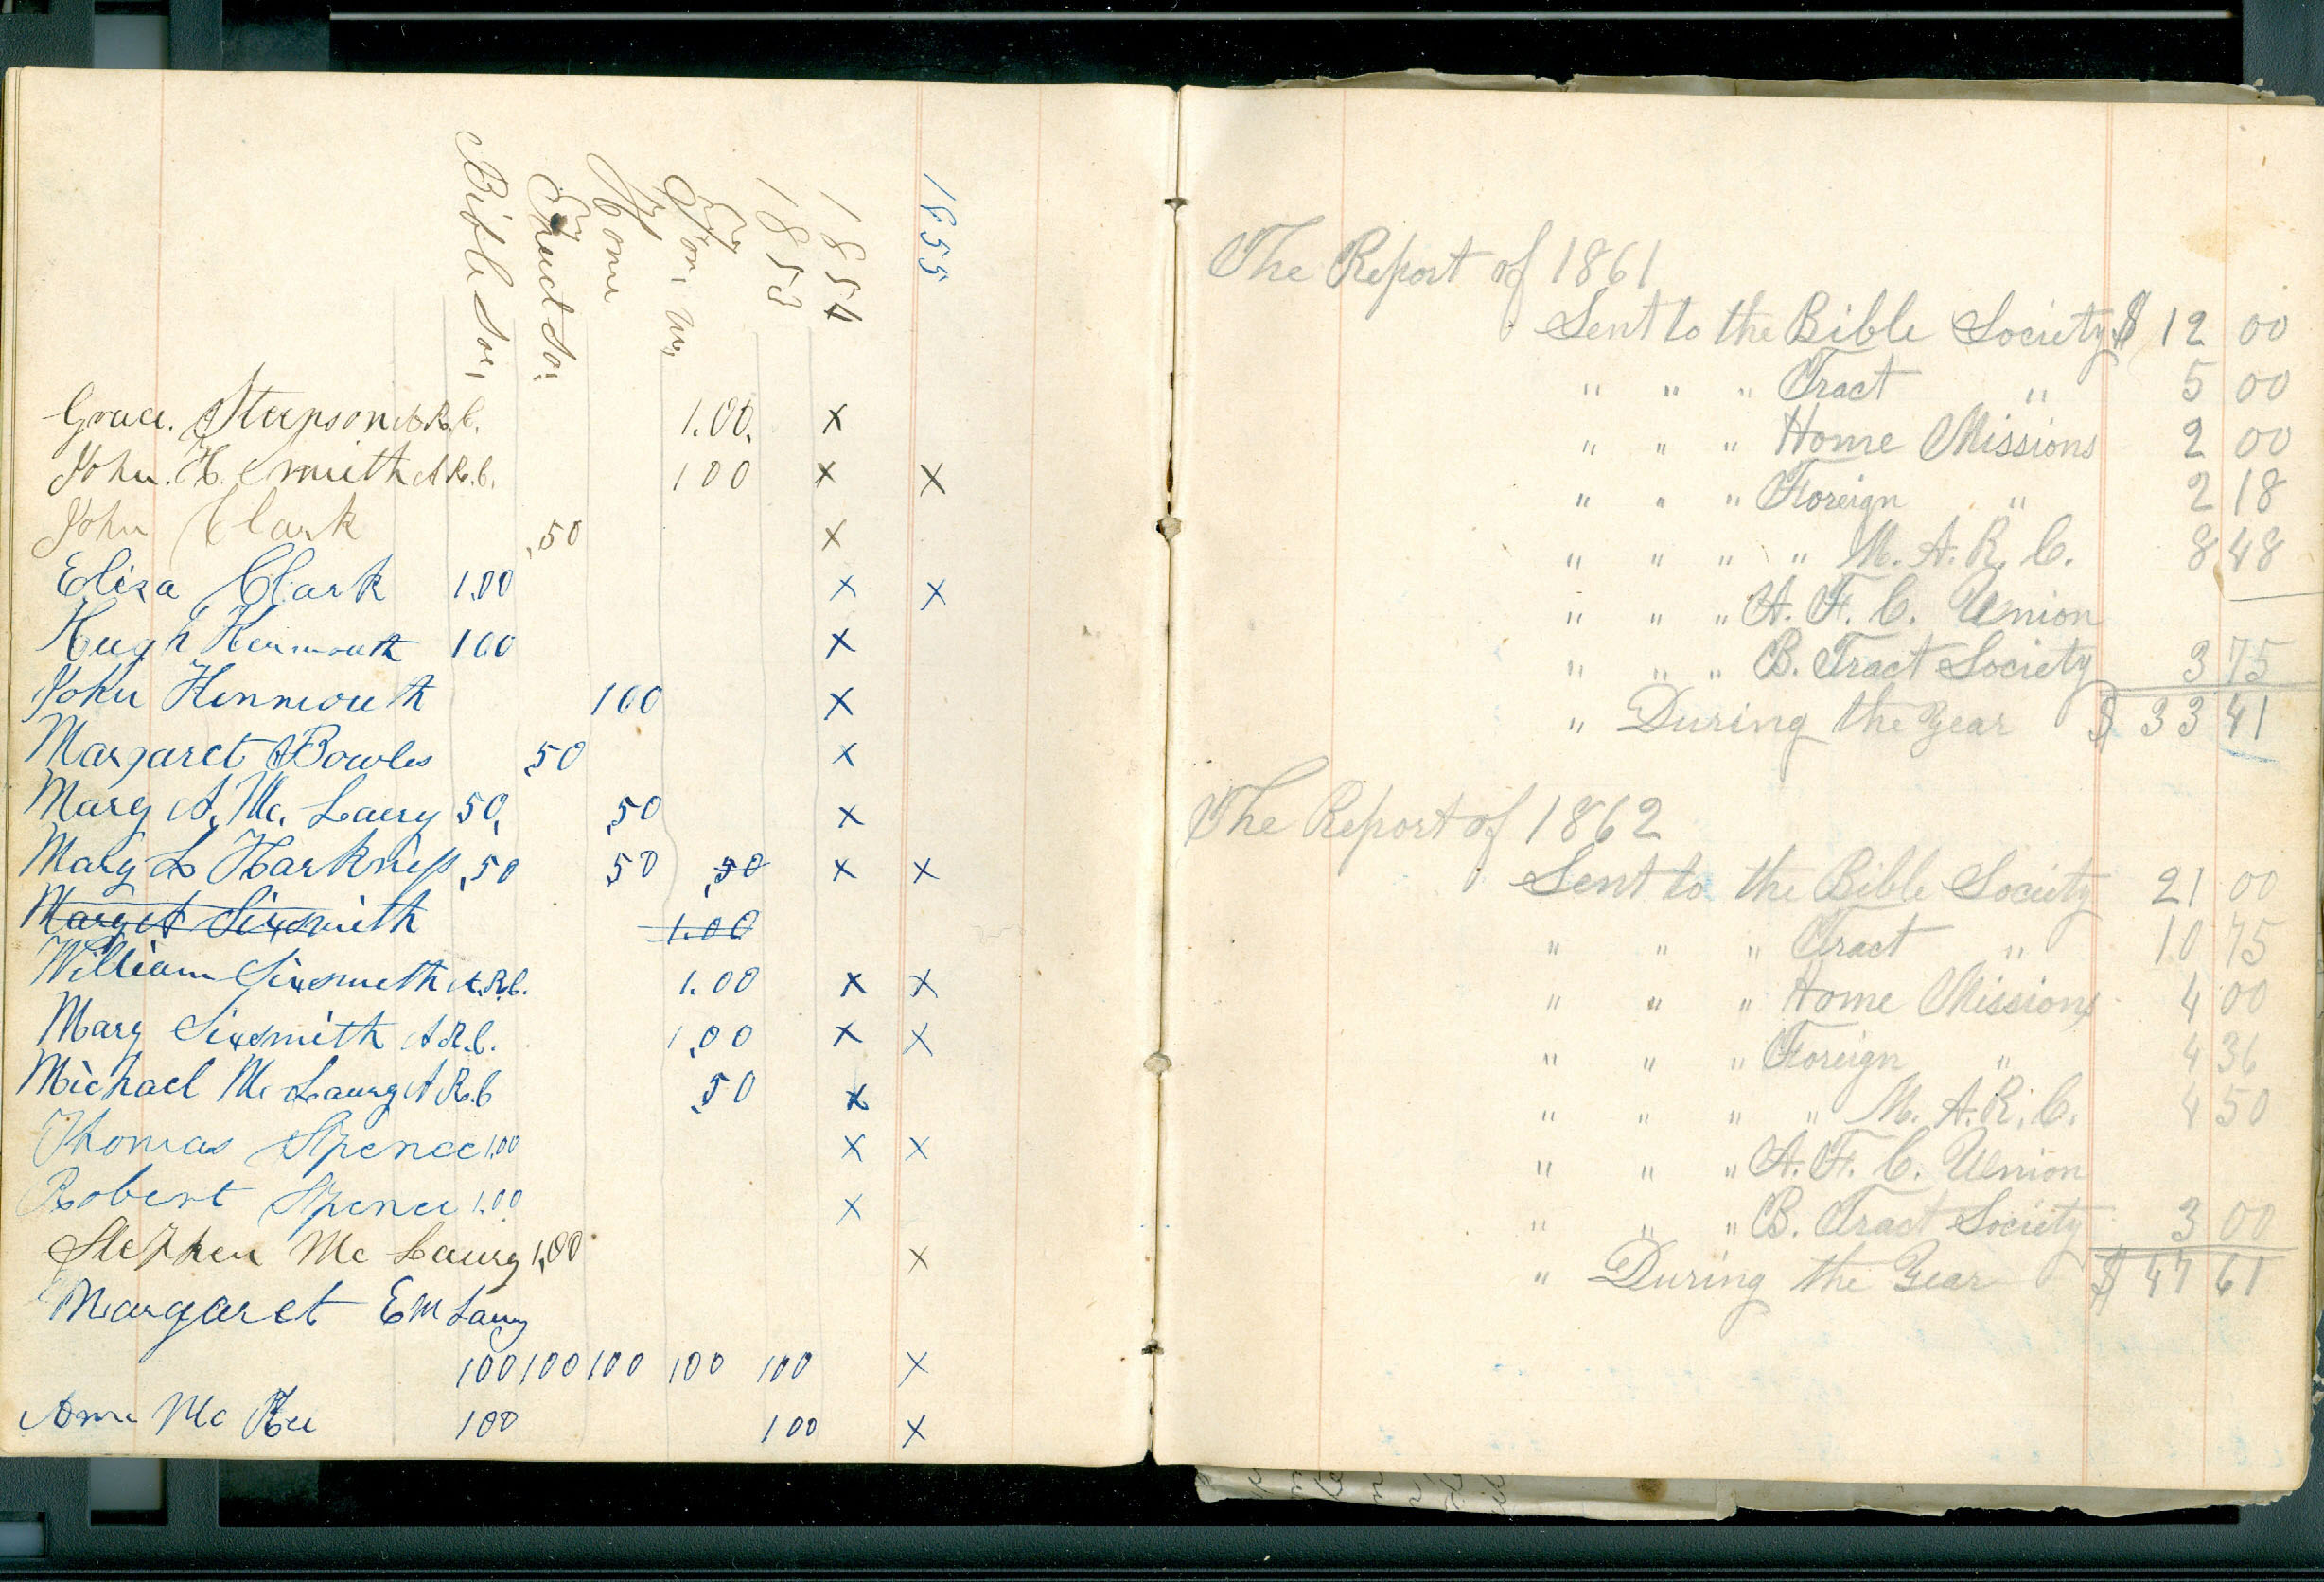 Bible Soc,
Tract So:
Home
For, M,
1853
1854
1855
Grace. Steepson A.R.C. 1.00. x
John. H. Smith A.R.C. 100 x x
John Clark ,50 x
Eliza Clark 1.00 x x
Hugh 100 x
John Henmouth 100 x
Margaret A Bowles ,50 x
Mary A. Mc. Laury 50, ,50 x
Mary L Harkness ,50 ,50 ,50 x x
Marget Sixsmith 1.00
William Sixsmith A.R.C. 1.00 x x
Mary Sixsmith A.R.C. 1,00 x x
Michael Mc Laury A R.C ,50 x
Thomas Spence 1.00 x x
Robert Spence 1.00 x
Stephen Mc Laury 1,00 x
Margaret E M Laury
100 100 100 100 100 x
Ann Mc Kee 100 100 x
The Report of 1861
Sent to the Bible Society $ 12 00
" " " Tract " 5 00
" " " Home Missions 2 00
" " " Foreign " 2 18
" " " " M. A. R. C. 8 48
" " " A. F. C. Union
" " " B. Tract Society 3 75
" During the Year $ 33 41
The Report of 1862
Sent to the Bible Society 21 00
" " " Tract " 10 75
" " " Home Missions 4 00
" " " Foreign " 4 36
" " " " M. A. R. C. 4 50
" " " A. F. C. Union
" " " B. Tract Society 3 00
" During the Year $ 47 61